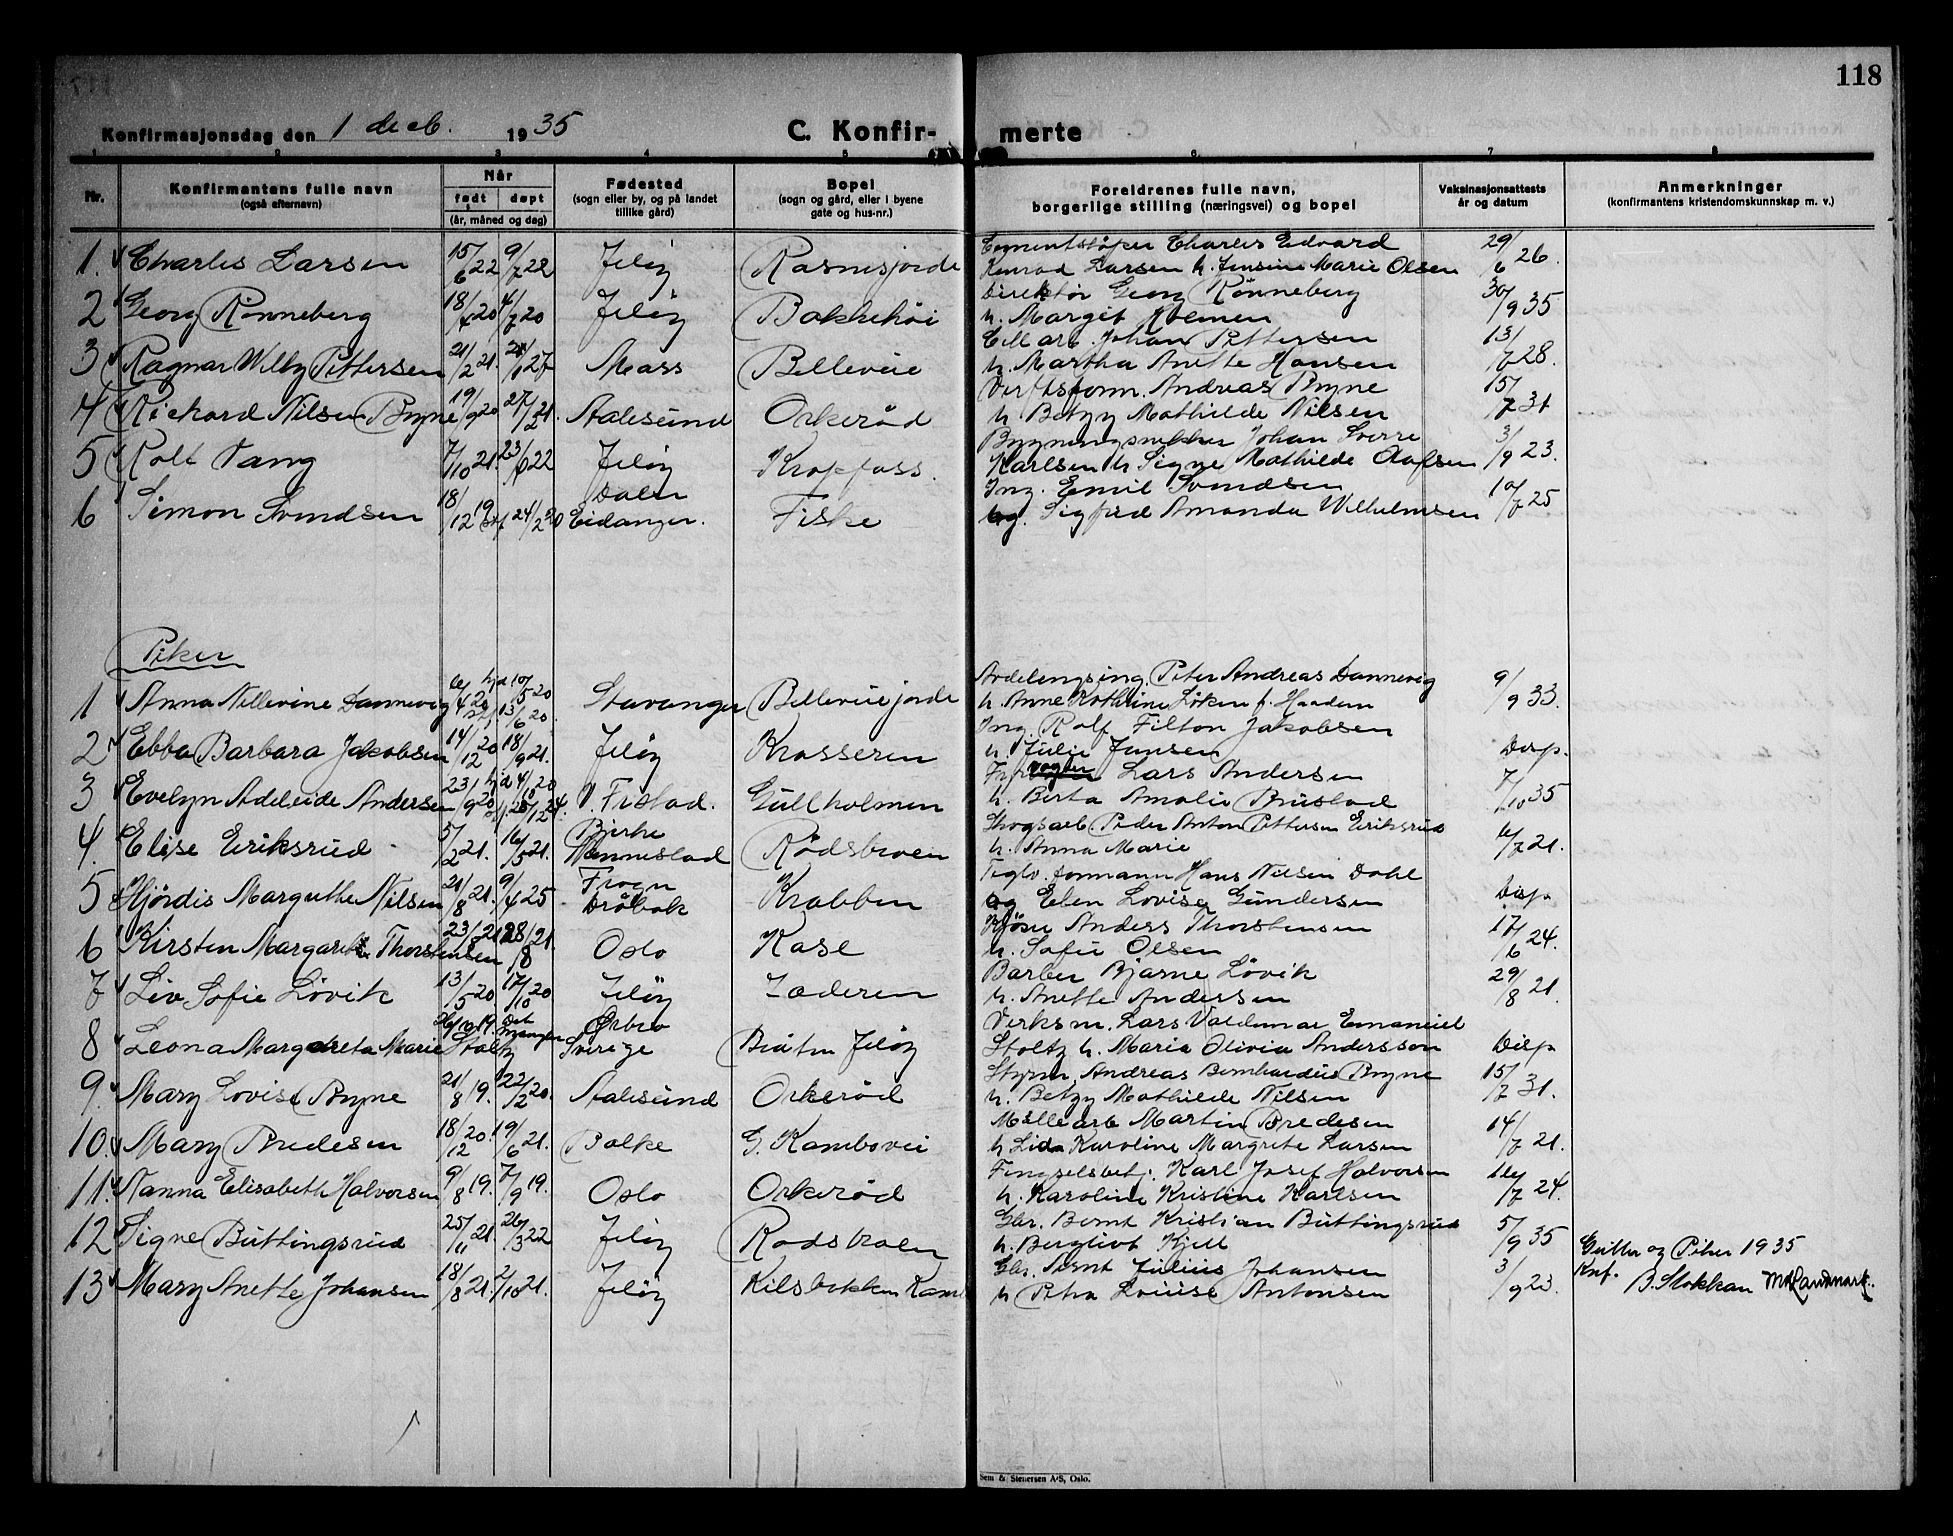 118
Konfirmasjonsdag den 1 decb. 1935 C. Konfir- merte
1 2 3 4 5 6 7 8
Nr. Konfirmantens fulle navn (også efternavn) Når født døpt (år, måned og dag) Fødested (sogn eller by, og på landet tillike gård) Bopel (sogn og gård, eller i byene gate og hus-nr.) Foreldrenes fulle navn, borgerlige stilling (næringsvei) og bopel Vaksinasjonsattests år og datum Anmerkninger (konfirmantens kristendomskunnskap m. v.)
1. Charles Larsen 15/6 22 9/7 22 Jeløy Rasmesjorde Cementstøper Charles Edvard Konrad Larsen h. Jensine Marie Olsen 29/6 26.
2 Georg Rønneberg 18/4 20 4/7 20 Jeløy Bakkehøi Direktør Georg Rønneberg h. Margit Holmen 30/9 35
3 Ragnar Willy Pettersen 21/2 21. 27 Moss Bellevüe Cell arb. Johan Pettersen h. Martha Anette Hansen 13/7 28.
4 Rickard Nilsen Bryne 19/9 20 27/2 21. Aalesund Orkerød Verftsform. Andreas Bryne h. Betzy Mathilde Nilsen 15/7 31
5 Rolf Vang 7/10 21. 23/6 22 Jeløy Kropfoss. Bygningssnekker Johan Sverre Karlsen h Signe Mathilde Olafsen 3/9 23.
6 Simon Svendsen 18/12 19 24/2 20 Eidanger. Fiske Ing. Emil Svendsen og. Sigfrid Amanda Wilhelmsen 10/7 25
Piker
1 Anna Nellevine Dannevig 6/4 20 hjd 10/5 20 stf. 13/6 20. Stavanger Bellevüejorde Avdelingsing. Peter Andreas Dannevig h. Anne Kathrine Løken f. Haadem 9/9 33.
2 Ebba Barbara Jakobsen 14/12 20 18/9 21. Jeløy Krosseren Ing. Rolf Filton Jakobsen h. Julie Jensen Disp.
3 Evelyn Adeleide Andersen 23/9 20 hjd 4/10 20 26/12 24. V. Frstad. Gullholmen Fyrvogter Lars Andersen h. Berta Amalie Brustad 7/10 35
4. Elise Eriksrud 5/2 21. 16/5 21. Bjerke Nannestad Rødsbroen Skogsarb Peder Anton Pettersen Eriksrud h. Anna Marie 6/7 21.
5 Hjørdis Margrethe Nilsen 21/8 21. 9/4 25 Frogn Drøbak Krabben Teglv. formann Hans Nilsen Dahl og Elen Lovise Gundersen Disp
6 Kirsten Margarete Thorstensen 23/ 21 28/8 21. Oslo Kase Anders Thorstensen h. Sofie Olsen 17/6 24.
7 Liv Sofie Løvik 13/5 20 17/10 20 Jeløy Jæderen Barber Bjarne Løvik h. Anette Anderssen 29/8 21.
8 Leona Margareta Marie Stoltz 26/10 19. Det mangler Ørbro Sverige Braaten Jeløy Verksm. Lars Valdemar Emanuel Stoltz h. Maria Olivia Andersson Disp
9. Mary Lovise Bryne 21/8 19. 22/2 20. Aalesund Orkerød Styrm. Andreas Bernhardus Bryne h. Betzy Mathilde Nilsen 15/7 31.
10. Mary Bredesen 18/12 20. 19/6 21. Balke G. Kambovei Møllearb Martin Bredesen h Lida Karoline Margrete Larsen 14/7 21.
11. Nanna Elisabeth Halvorsen 9/8 19. 7/9 19. Oslo Orkerød Fengselsbetj. Karl Josef Halvorsen h. Karoline Kristine Karlsen 16/7 24.
12 Signe Buttingsrud 25/11 21. 26/3 22 Jeløy Rødsbroen Gbr. Bernt Kristian Buttingsrud h. Bergliot Kjell 5/9 35
13 Mary Anette Johansen 18/8 21. 2/10 21. Jeløy Kilsbakken Kamb Gbr. Bernt Julius Johansen h Petra Louise Antonsen 3/9 23.
Gutter og Piker 1935
Knf. B. Stokkan MLandmark.
Sem & Stenersen A/S, Oslo.